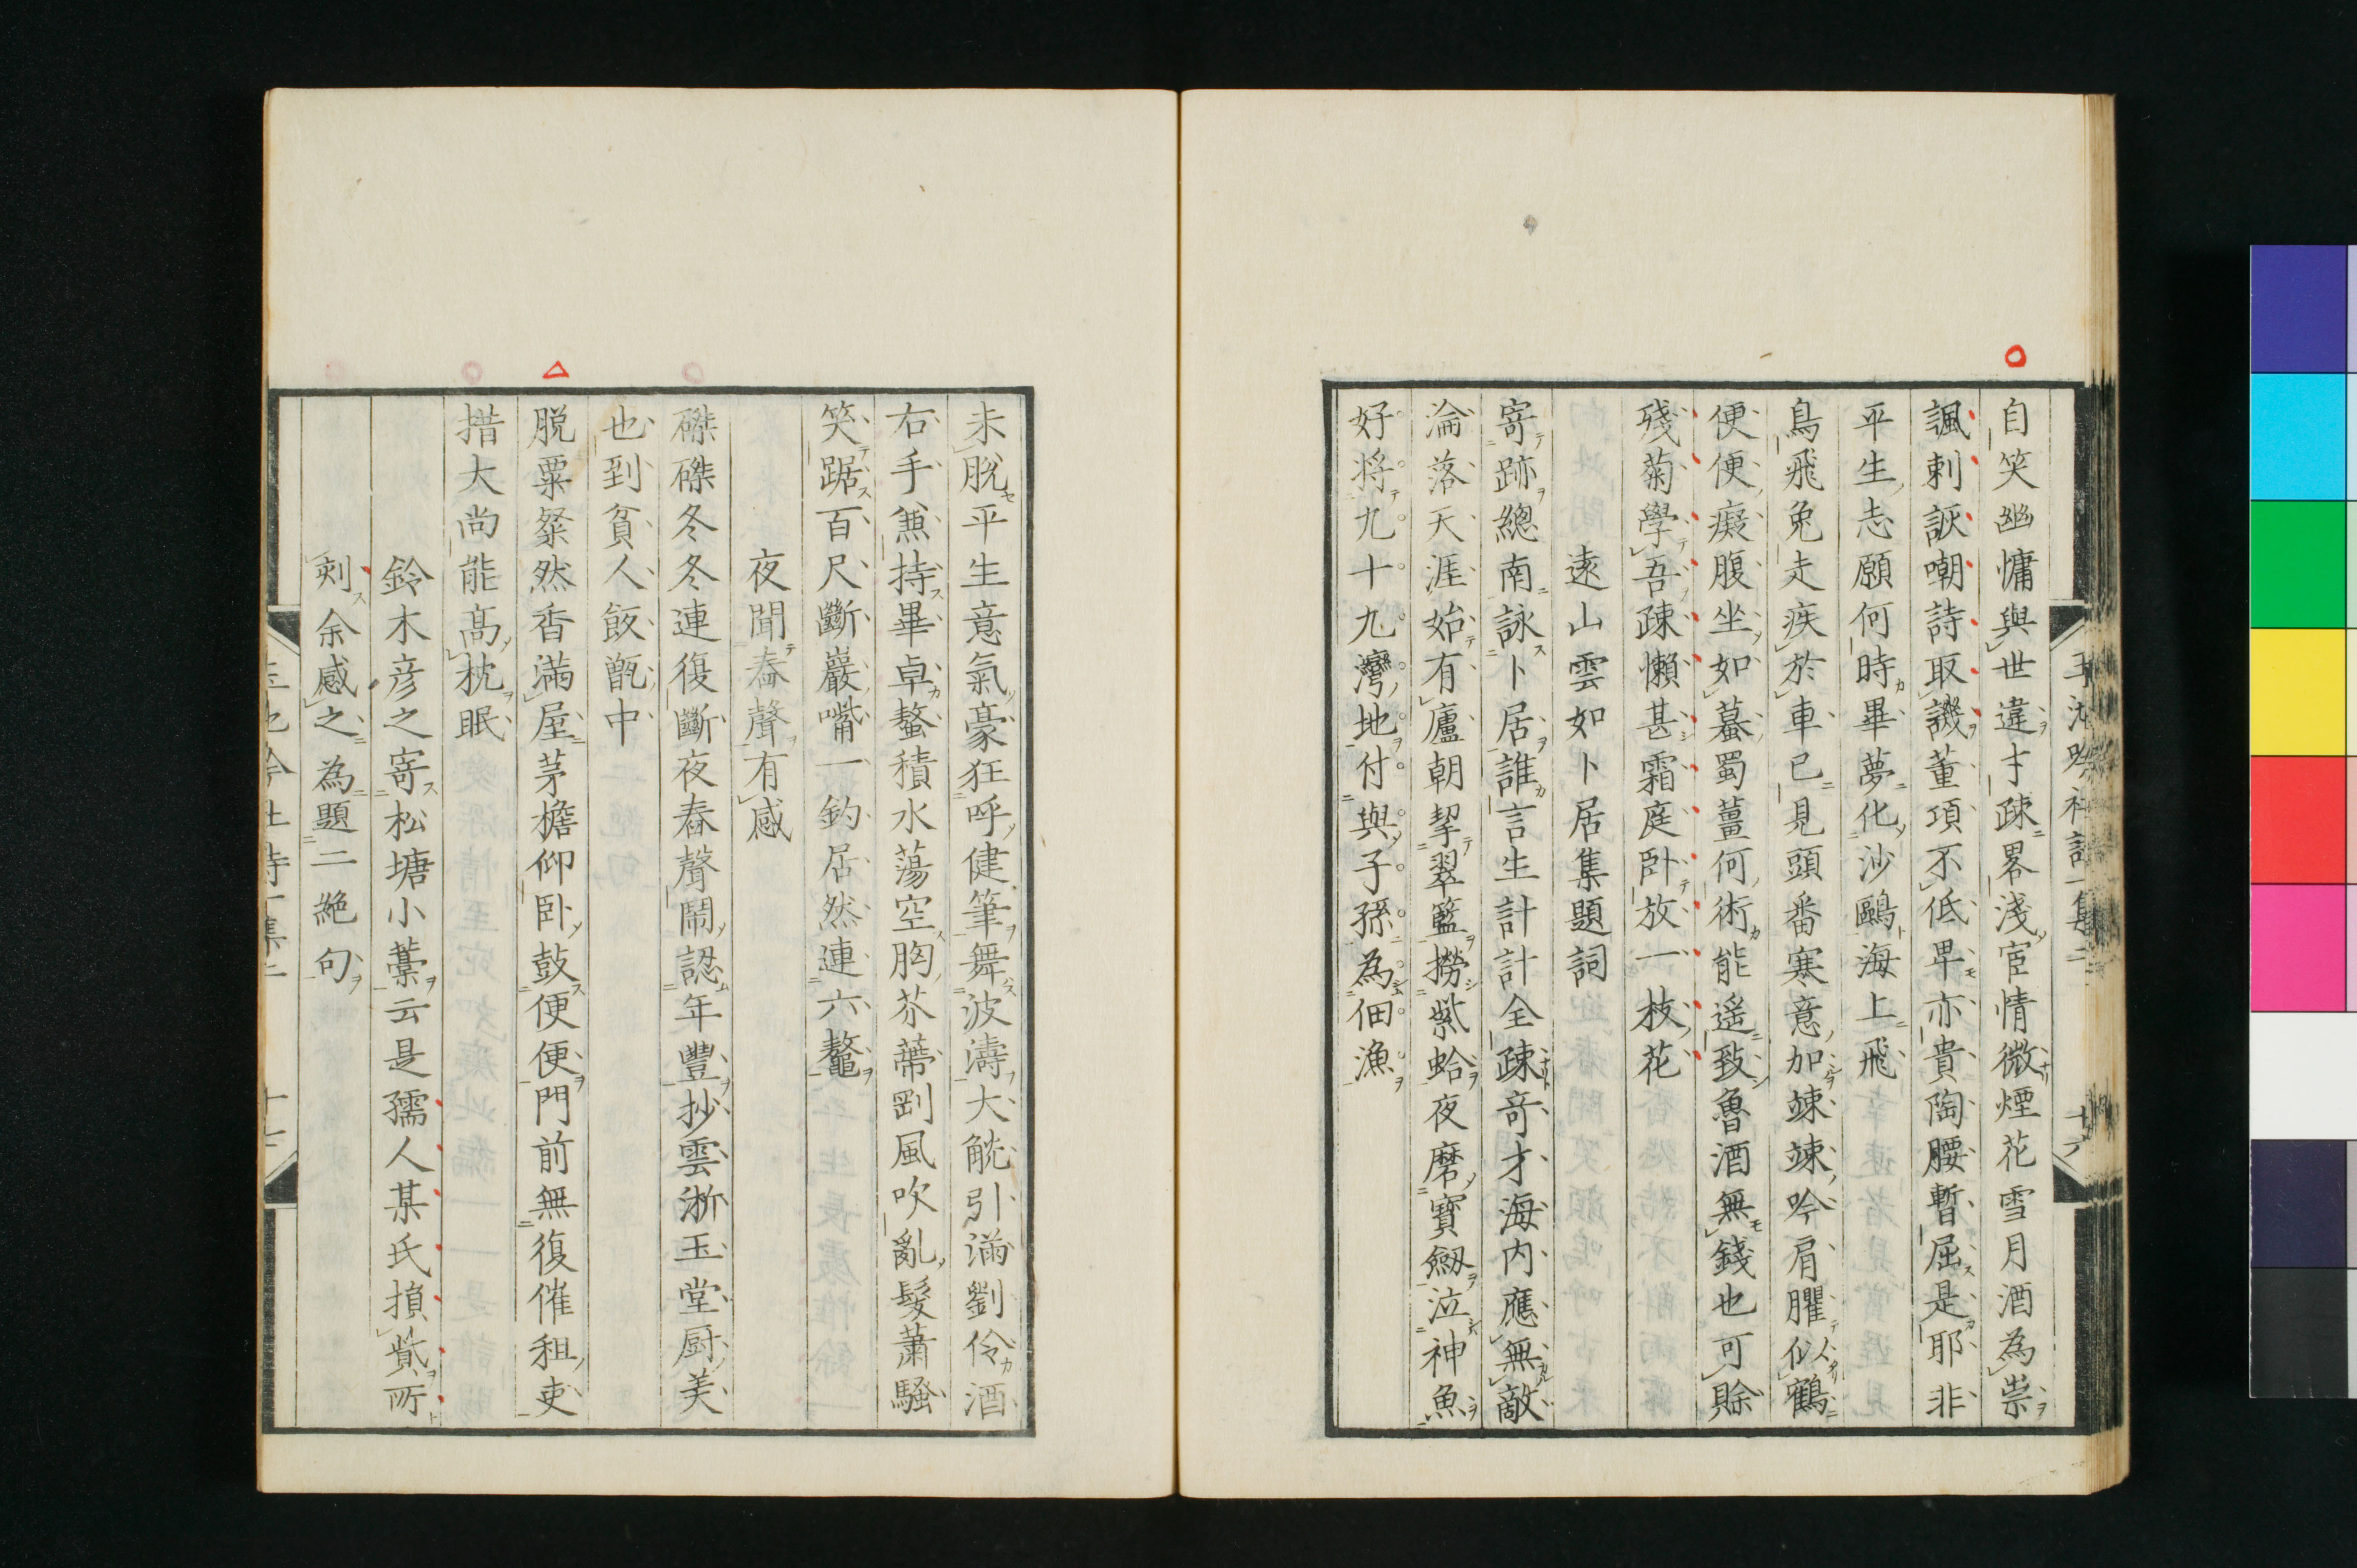 自笑幽慵與世違才疎畧淺宦情微煙花雪月酒為祟
諷刺詼嘲詩取譏董項不低卑亦貴陶腰暫屈是耶非
平生志願何時畢夢化沙鷗海上飛
烏飛兔走疾於車已見頭番寒意加竦竦吟肩臞似鶴
便便癡腹坐如蟇蜀薑何術能遙致魯酒無錢也可賖
殘菊學吾疎懶甚霜庭卧放一枝花
遠山雲如卜居集題詞
寄跡總南詠卜居誰言生計計全疎奇才海内應無敵
淪落天涯始有廬朝挈翠籃撈紫蛤夜磨寶劔泣神魚
好将九十九灣地付與子孫為佃漁
未脱平生意氣豪狂呼健筆舞波濤大觥引滿劉伶酒
右手兼持畢卓螯積水蕩空胸芥蔕剛風吹亂髮蕭騷
笑踞百尺斷巖嘴一釣居然連六鼇
夜聞舂聲有感
磔磔冬冬連復斷夜舂聲鬧認年豐抄雲淅玉堂厨美
也到貧人飯甑中
脱粟粲然香滿屋茅檐仰卧鼓便便門前無復催租吏
措大尚能高枕眠
鈴木彦之寄松塘小藁云是孺人某氏損貲所
刻余感之為題二絶句